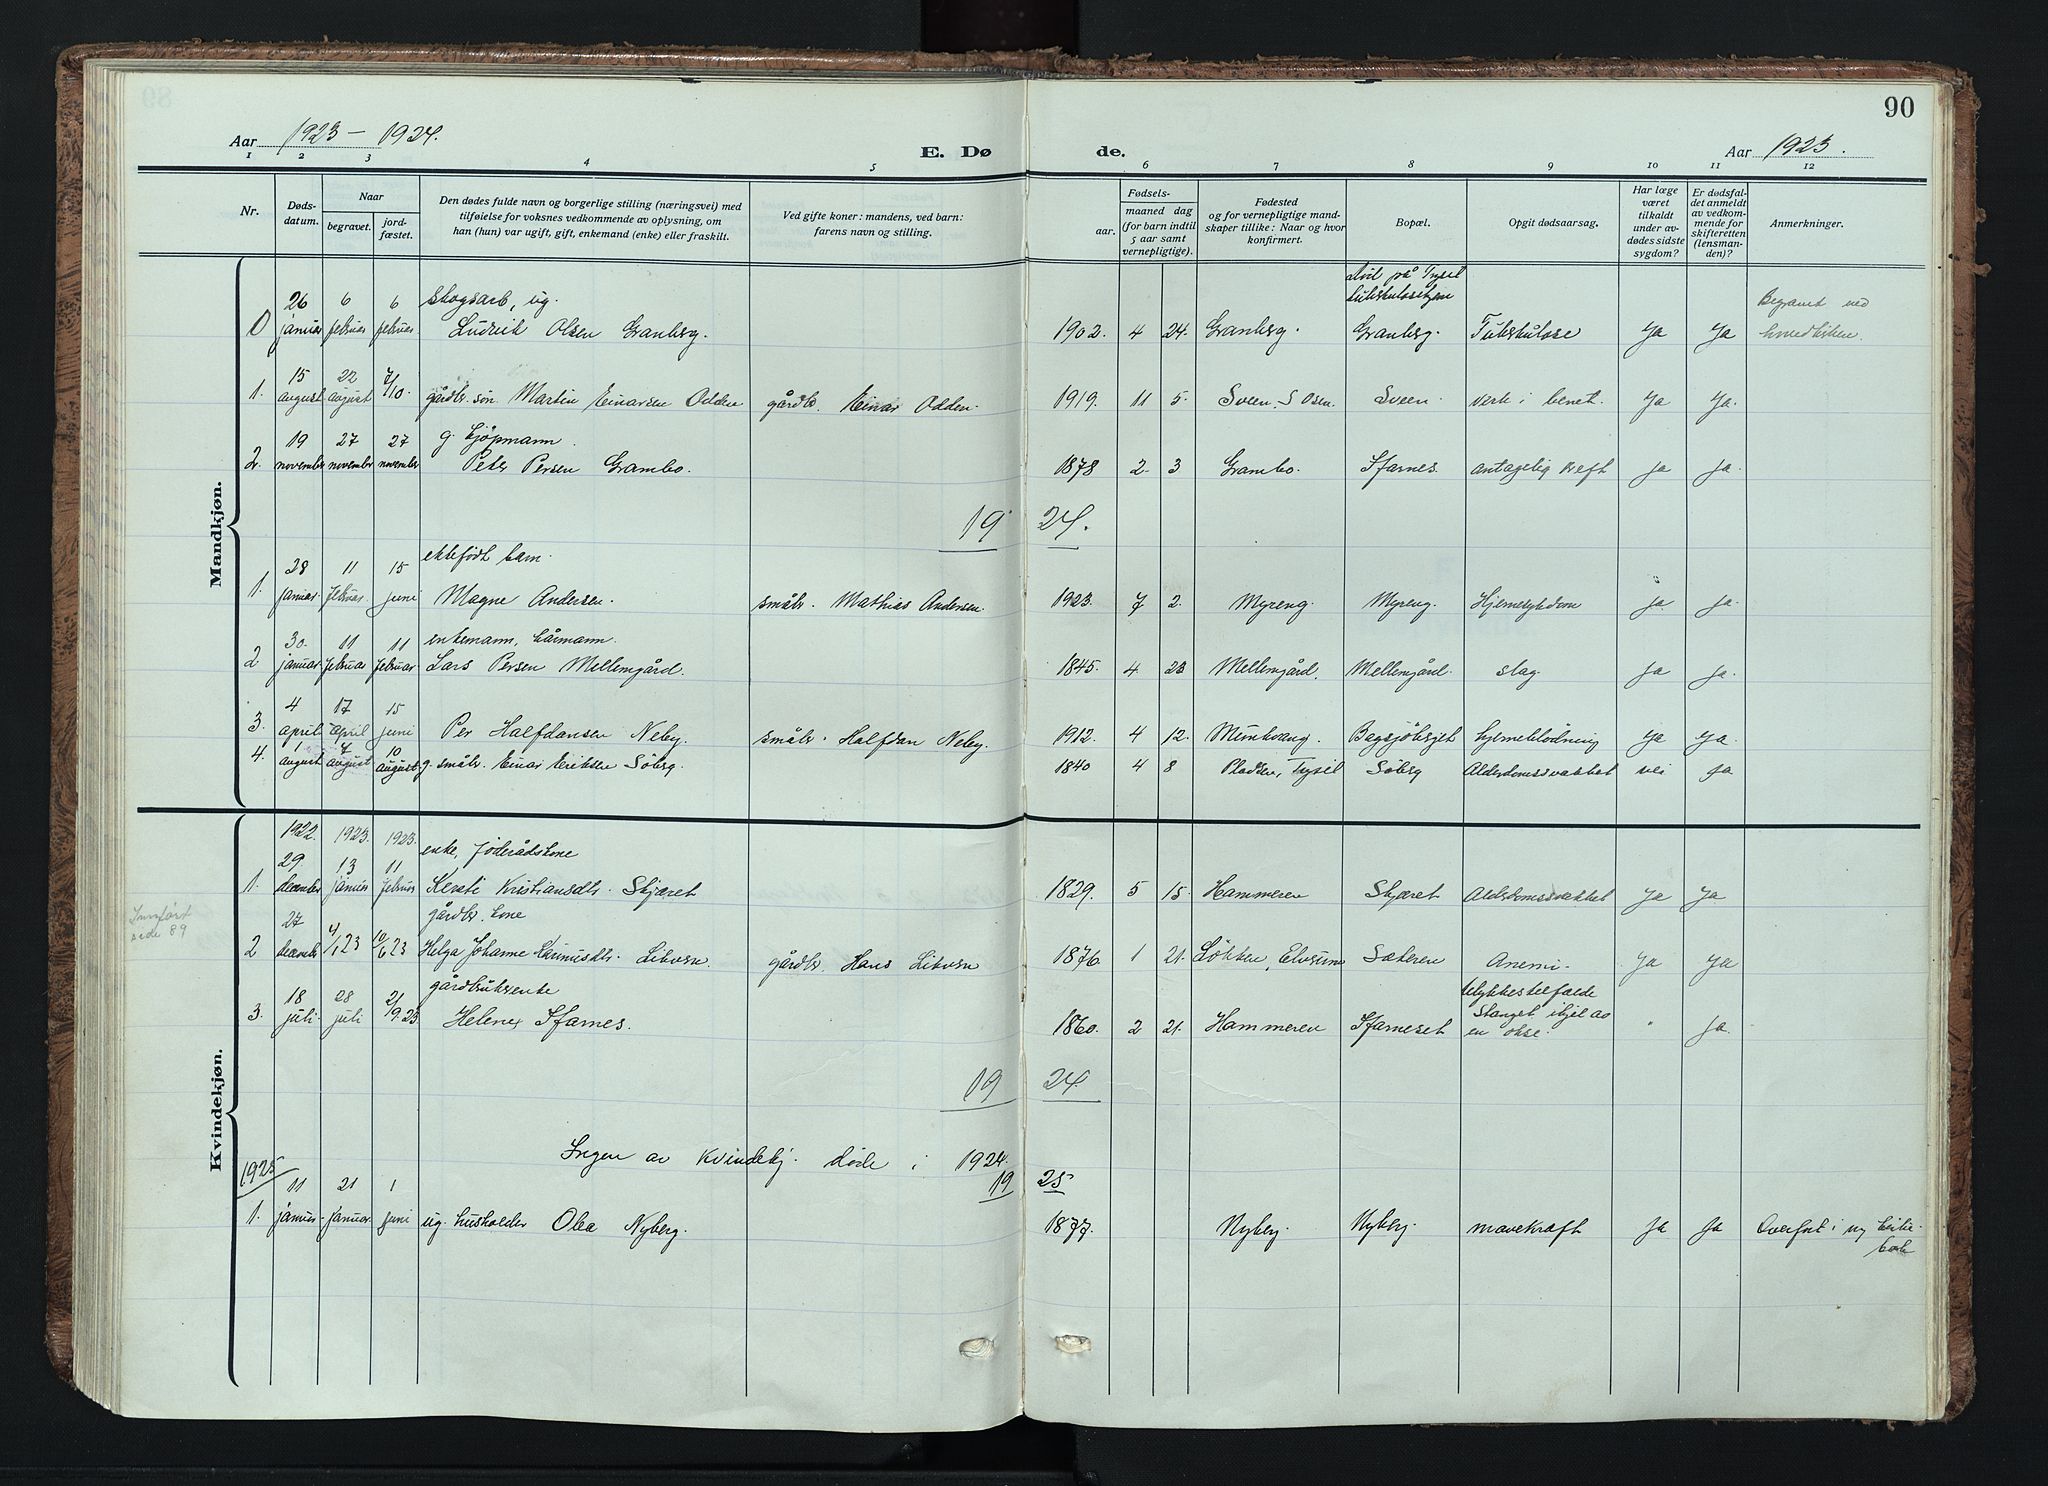 90
Aar 1923 – 1924.
E. Dø de.
Aar 1923.
1 2 3 4 5 6 7 8 9 10 11 12
Nr.
Døds-
datum.
Naar
begravet.
jord-
fæstet.
Den dødes fulde navn og borgerlige stilling (næringsvei) med
tilføielse for voksnes vedkommende av oplysning, om
han (hun) var ugift, gift, enkemand (enke) eller fraskilt.
Ved gifte koner: mandens, ved barn:
farens navn og stilling.
Fødsels-
aar.
maaned dag
(for barn indtil
5 aar samt
vernepligtige).
Fødested
og for vernepligtige mand-
skaper tillike: Naar og hvor
konfirmert.
Bopæl.
Opgit dødsaarsag.
Har læge
været
tilkaldt
under av-
dødes sidste
sygdom?
Er dødsfal-
det anmeldt
av vedkom-
mende for
skifteretten
(lensman-
den)?
Anmerkninger.
Mandkjøn.
død på Trysil
26 6 6 skogsarb, ug. Begravet ved
0 januar februar februar Ludvik Olsen Granberg. 1902. 4 24. Granberg. Granberg. Tuberkulose Ja Ja
15 22 7/10.
1. august august gårdbr. søn Martin Einarsen Odden gårdbr. Einar Odden. 1919. 11 5. Sveen, S Osen. Sveen. verk i benet. Ja Ja.
19 27 27 g. kjøpmann.
2. november november november Peter Persen Grambo. 1878 2. 3 Grambo. antagelig kreft Ja Ja.
19 24.
28 11 15 ektefødt barn.
1. januar. februar. juni Magne Andersen. småbr. Mathias Andersen. 1923. 7 2. Myreng. Myreng. Hjernesykdom Ja Ja.
30. 11 11 enkemann, kårmann.
2 januar. februar februar Lars Persen Mellemgård. 1845. 4 23 Mellemgård. Mellemgård. slag. Ja Ja.
4 17 15
3. april april juni Per Halfdansen Neby. småbr. Halfdan Neby. 1912. 4 12. hjerneblødning Ja Ja.
1 4 10
4. august august august. g. småbr. Einar Eriksen Søberg. 1840 4 8 Pladsen, Trysil Søberg Alderdomssvakhet nei Ja
Kvindekjøn.
1922. 1923. 1923.
29. 13 11 enke, føderådskone
1. december januar februar Kersti Kristiansdtr. Skjæret 1829. 5 15. Hammeren Skjæret Alderdomssvakhet Ja Ja
Innført
side 89
27 gårdbr. kone
2 december 4/1 23 10/6 23 Helga Johanne Rasmusdtr. gårdbr. Hans 1876. 1 21. Løkken, Elverum Sæteren Anemi. Ja Ja
18 28 21 gårdbrukerenke Ulykkestilfælde
3. juli. juli 1923 Helene 1860. 2 21. Hammeren Stanget ihjel av
en okse. " Ja.
19 24
Ingen av Kvindekj. døde i 1924.
1925 19 25
11 21 1
1. januar. januar. juni ug. husholder Olea Nyberg. 1877. Nyberg Nyberg. mavekræft Ja Ja Overført i ny kirke-
bok